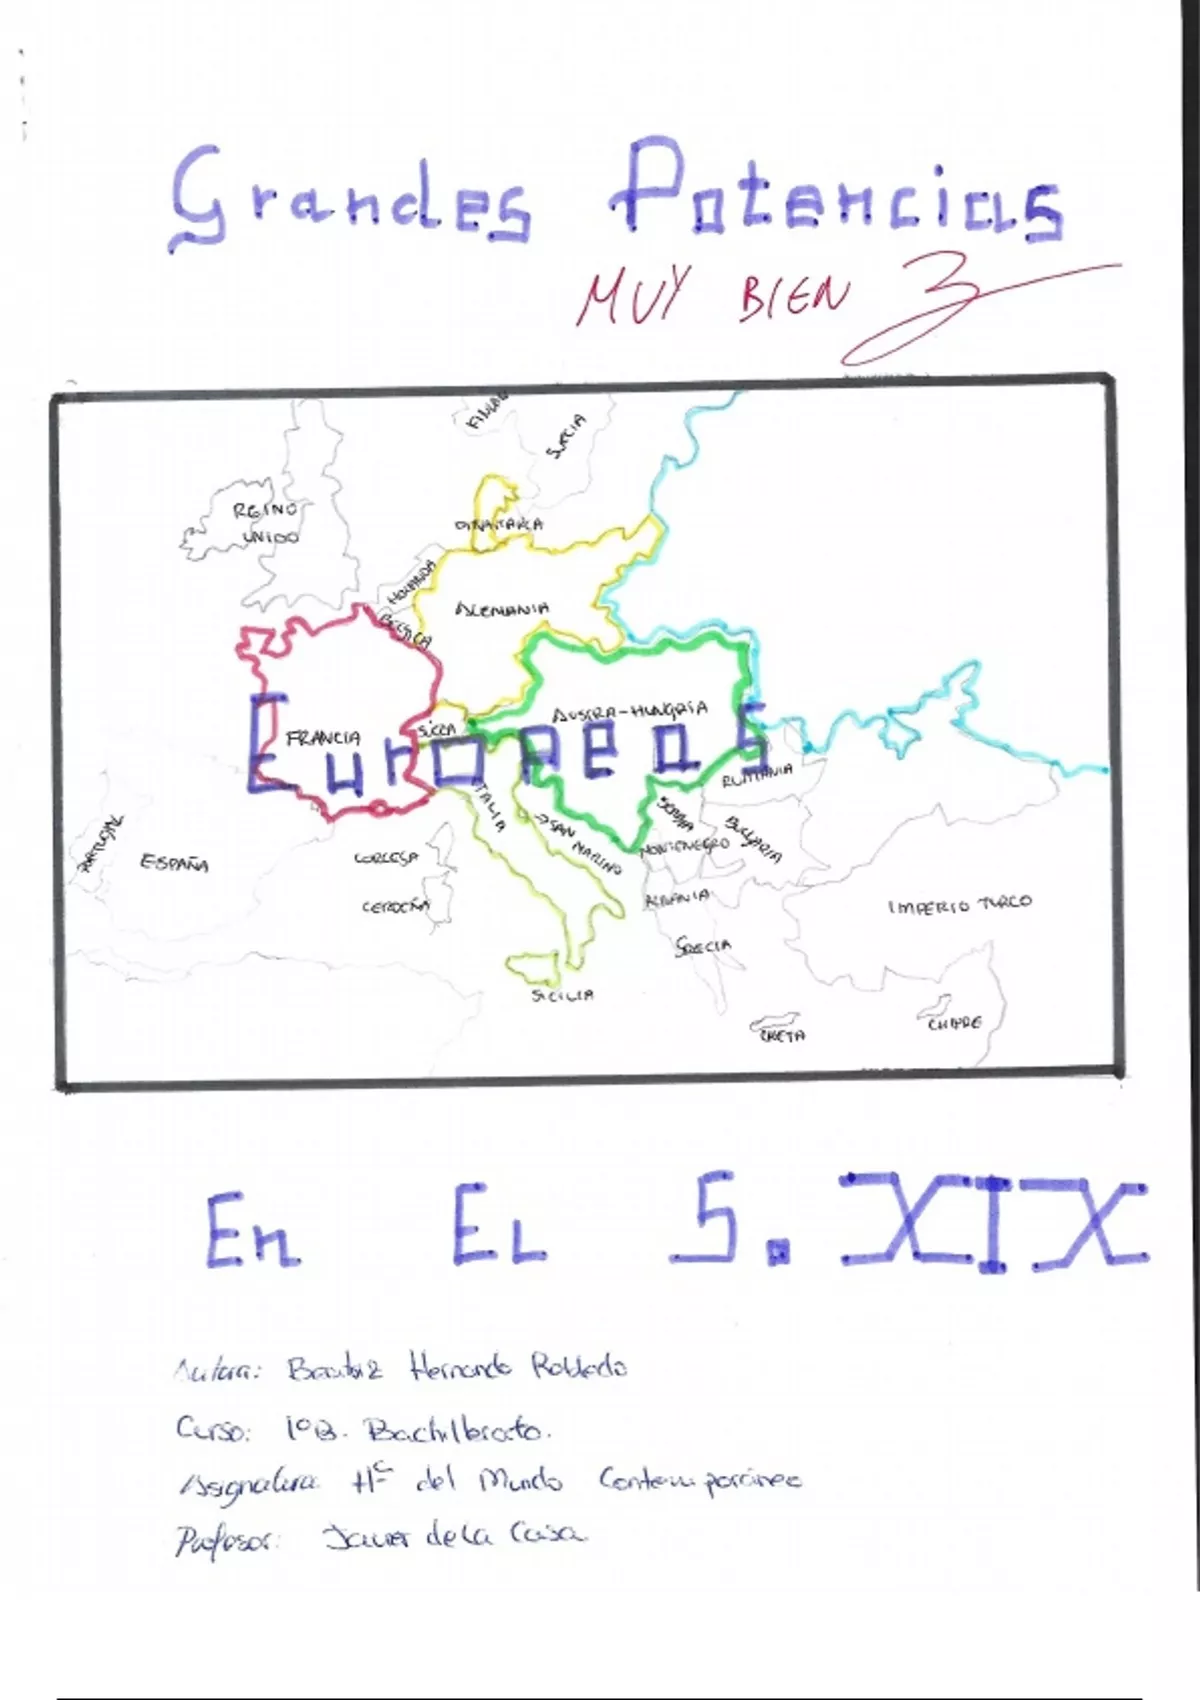 Grandes Potencias
MUY BIEN
SUECIA
REINO
UNIDO
DINAMARCA
HOLANDA
ALEMANIA
BELGICA
AUSTRA-HUNGRIA
FRANCIA
Europeas
RUMANIA
ITALIA
SERBIA
PORTUGAL
ESPAÑA
SAN MARINO
BULGARIA
MONTENEGRO
CORCEGA
CERDEÑA
ALBANIA
IMPERIO TURCO
GRECIA
SICILIA
CRETA
CHIPRE
En EL S. XIX
Autora: Beatriz Hernando Robledo
Curso: 1ºB. Bachillerato.
Asignatura: Hª del Mundo Contemporáneo
Profesor: Javier de la Casa